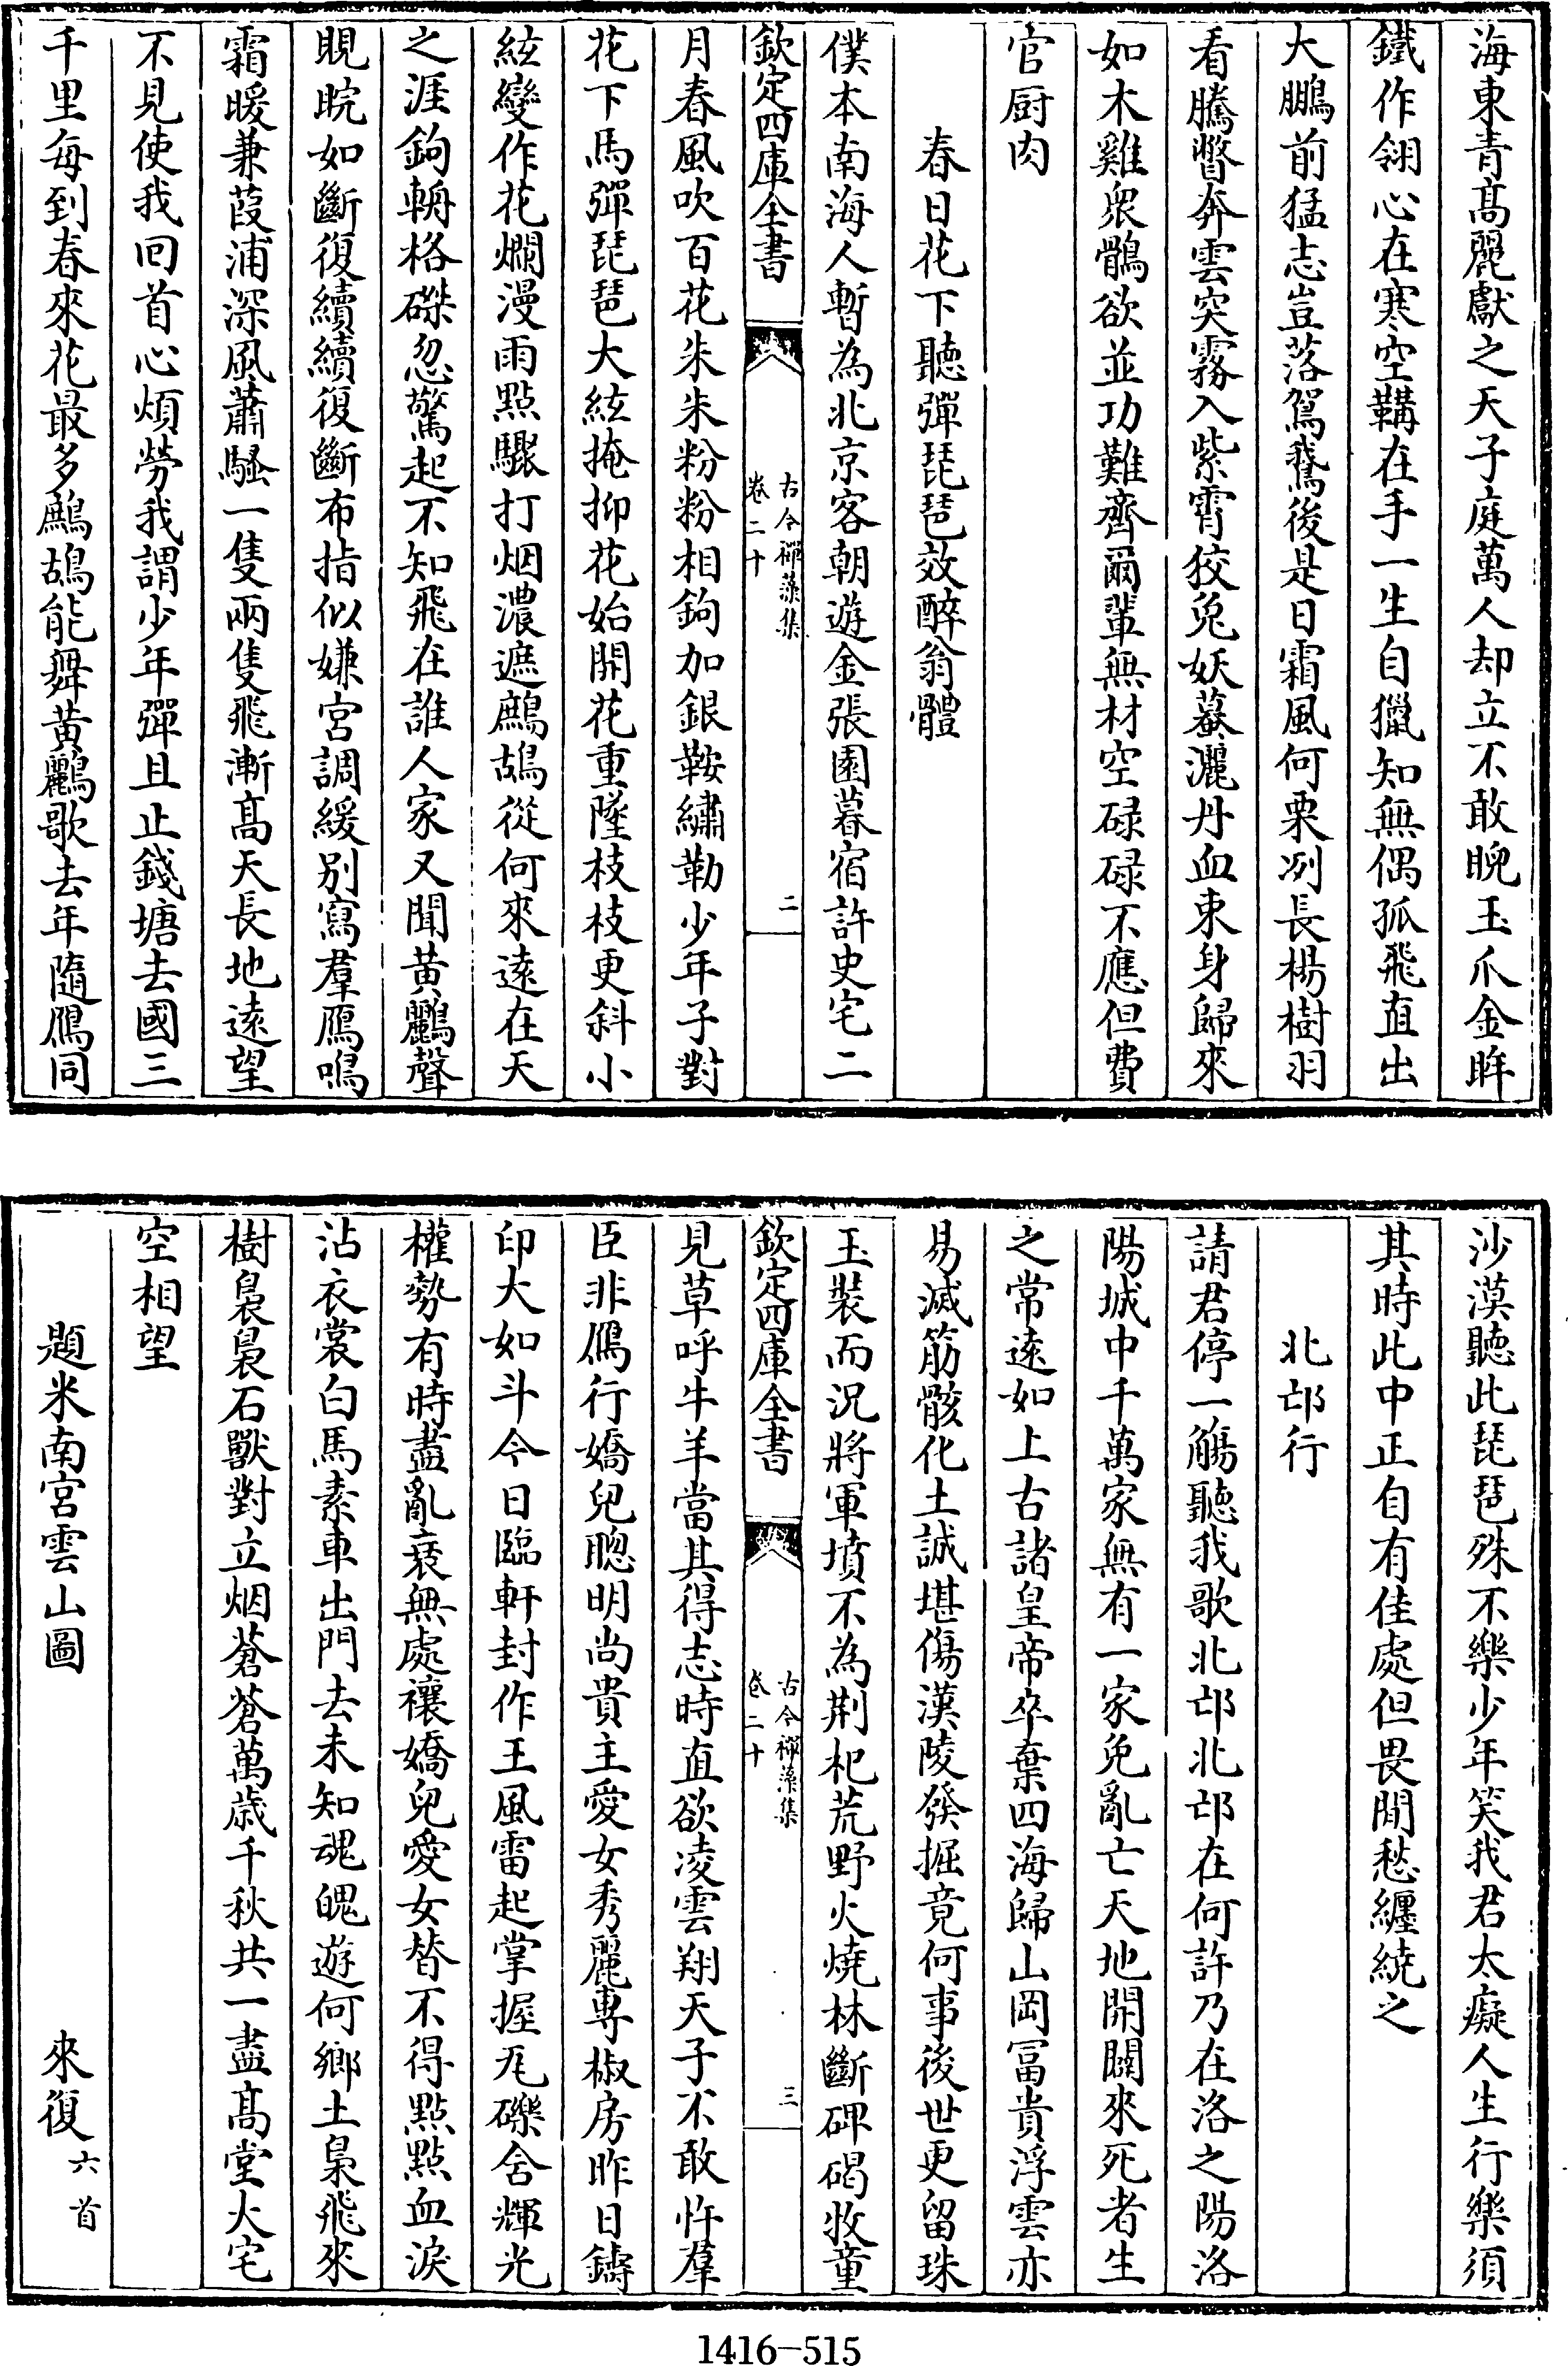 海東青髙麗獻之天子庭萬人却立不敢睨玉爪金眸
鐵作翎心在寒空鞲在手一生自獵知無偶孤飛直出
大鵬前猛志豈落駕鵞後是日霜風何栗冽長楊樹羽
看騰瞥奔雲突霧入紫霄狡兎妖蟇灑丹血束身歸來
如木雞衆鶻欲並功難齊爾輩無材空碌碌不應但費
官厨肉
春日花下聽彈琵琶效醉翁體
僕本南海人暫為北京客朝遊金張園暮宿許史宅二
欽定四庫全書
古今禪藻集
卷二十
二
月春風吹百花朱朱粉粉相鉤加銀鞍繡勒少年子對
花下馬彈琵琶大絃掩抑花始開花重墜枝枝更斜小
絃變作花爛漫雨點驟打烟濃遮鷓鴣從何來逺在天
之涯鉤輈格磔忽驚起不知飛在誰人家又聞黄鸝聲
睍睆如斷復續續復斷布指似嫌宮調緩别寫羣鴈鳴
霜暖兼葭浦深風蕭騷一隻兩隻飛漸髙天長地逺望
不見使我回首心煩勞我謂少年彈且止錢塘去國三
千里每到春來花最多鷓鴣能舞黄鸝歌去年隨鴈同
沙漠聽此琵琶殊不樂少年笑我君太癡人生行樂須
其時此中正自有佳處但畏閒愁纒繞之
北邙行
請君停一觴聽我歌北邙北邙在何許乃在洛之陽洛
陽城中千萬家無有一家免亂亡天地開闢來死者生
之常逺如上古諸皇帝卒棄四海歸山岡冨貴浮雲亦
易滅筋骸化土誠堪傷漢陵發掘竟何事後世更留珠
玉裝而况將軍墳不為荆杞荒野火燒林斷碑碣牧童
欽定四庫全書
古今禪藻集
卷二十
三
見草呼牛羊當其得志時直欲凌雲翔天子不敢忤羣
臣非鴈行嬌兒聰明尚貴主愛女秀麗專椒房昨日鑄
印大如斗今日臨軒封作王風雷起掌握瓦礫含輝光
權勢有時盡亂衰無處禳嬌兒愛女替不得點點血淚
沾衣裳白馬素車出門去未知魂魄遊何鄉土梟飛來
樹裊裊石獸對立烟蒼蒼萬歳千秋共一盡髙堂大宅
空相望
題米南宮雲山圖
來復六首
1416-515